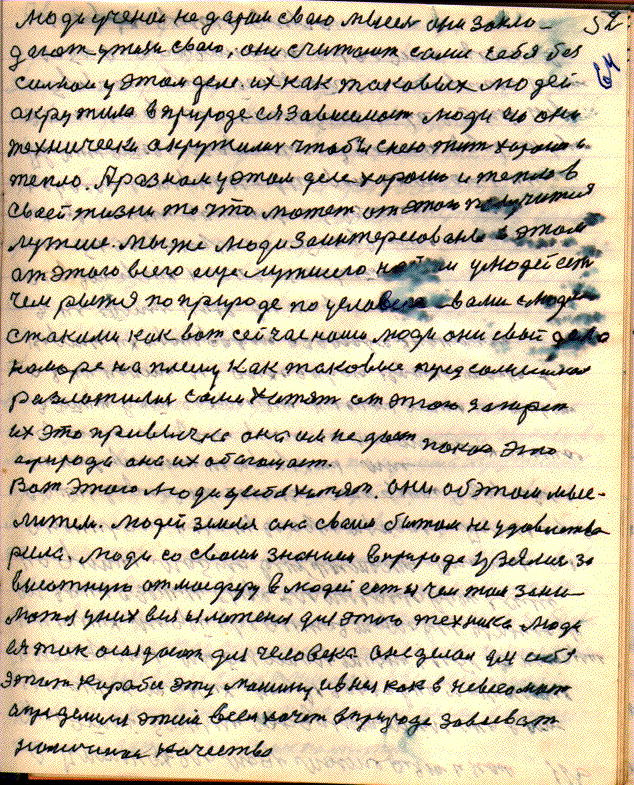 люди ученои не даром свою мысел они закло- 52
дагают у жизн свою, они считают сами себя без 64
силною у этом деле. их как таковых людей
окружила в природе ся зависимост люди но они
технически окружилис чтобы с нею жит хорошо и
тепло. А разнам у этом деле хорошо и тепло в
своей жизни то что может от этого получится
лутше. мы же люди заинтересованы в этом
от этого всего еще лутшего у людей ест
чем рытся по природе по условега вами с людми
стаками как вот сейчас наши люди они свои дело
на море на пляжу как таковые пред солнышком
разложилис сами хотят от этого загорет
их это привычка она им не дает покоя это
природа она их обагощает.
Вот этого люди у себя хотят. они об этом мыс-
лител. людей земля она своим бытом не удовлетво
рила. люди со своим знанием в природе узялис за
высотную отмосферу в людей ест и чем там зани
матся у них вся изложена для этого техника люди
ея так создают для человека он сделал для себя
этот корабе эту машину и в ней как в невесомост
определился этим всем хочет в природе завоеват
количество качество